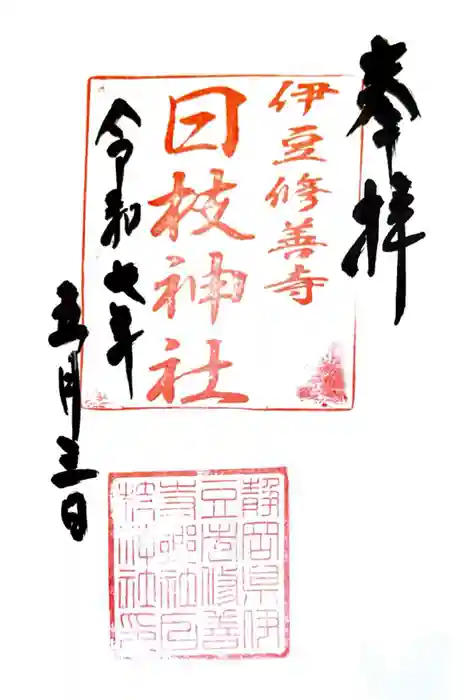 奉拝
伊豆修善寺
日枝神社
令和七年
五月三日
静岡県伊
豆市修善
寺郷社日
枝神社印